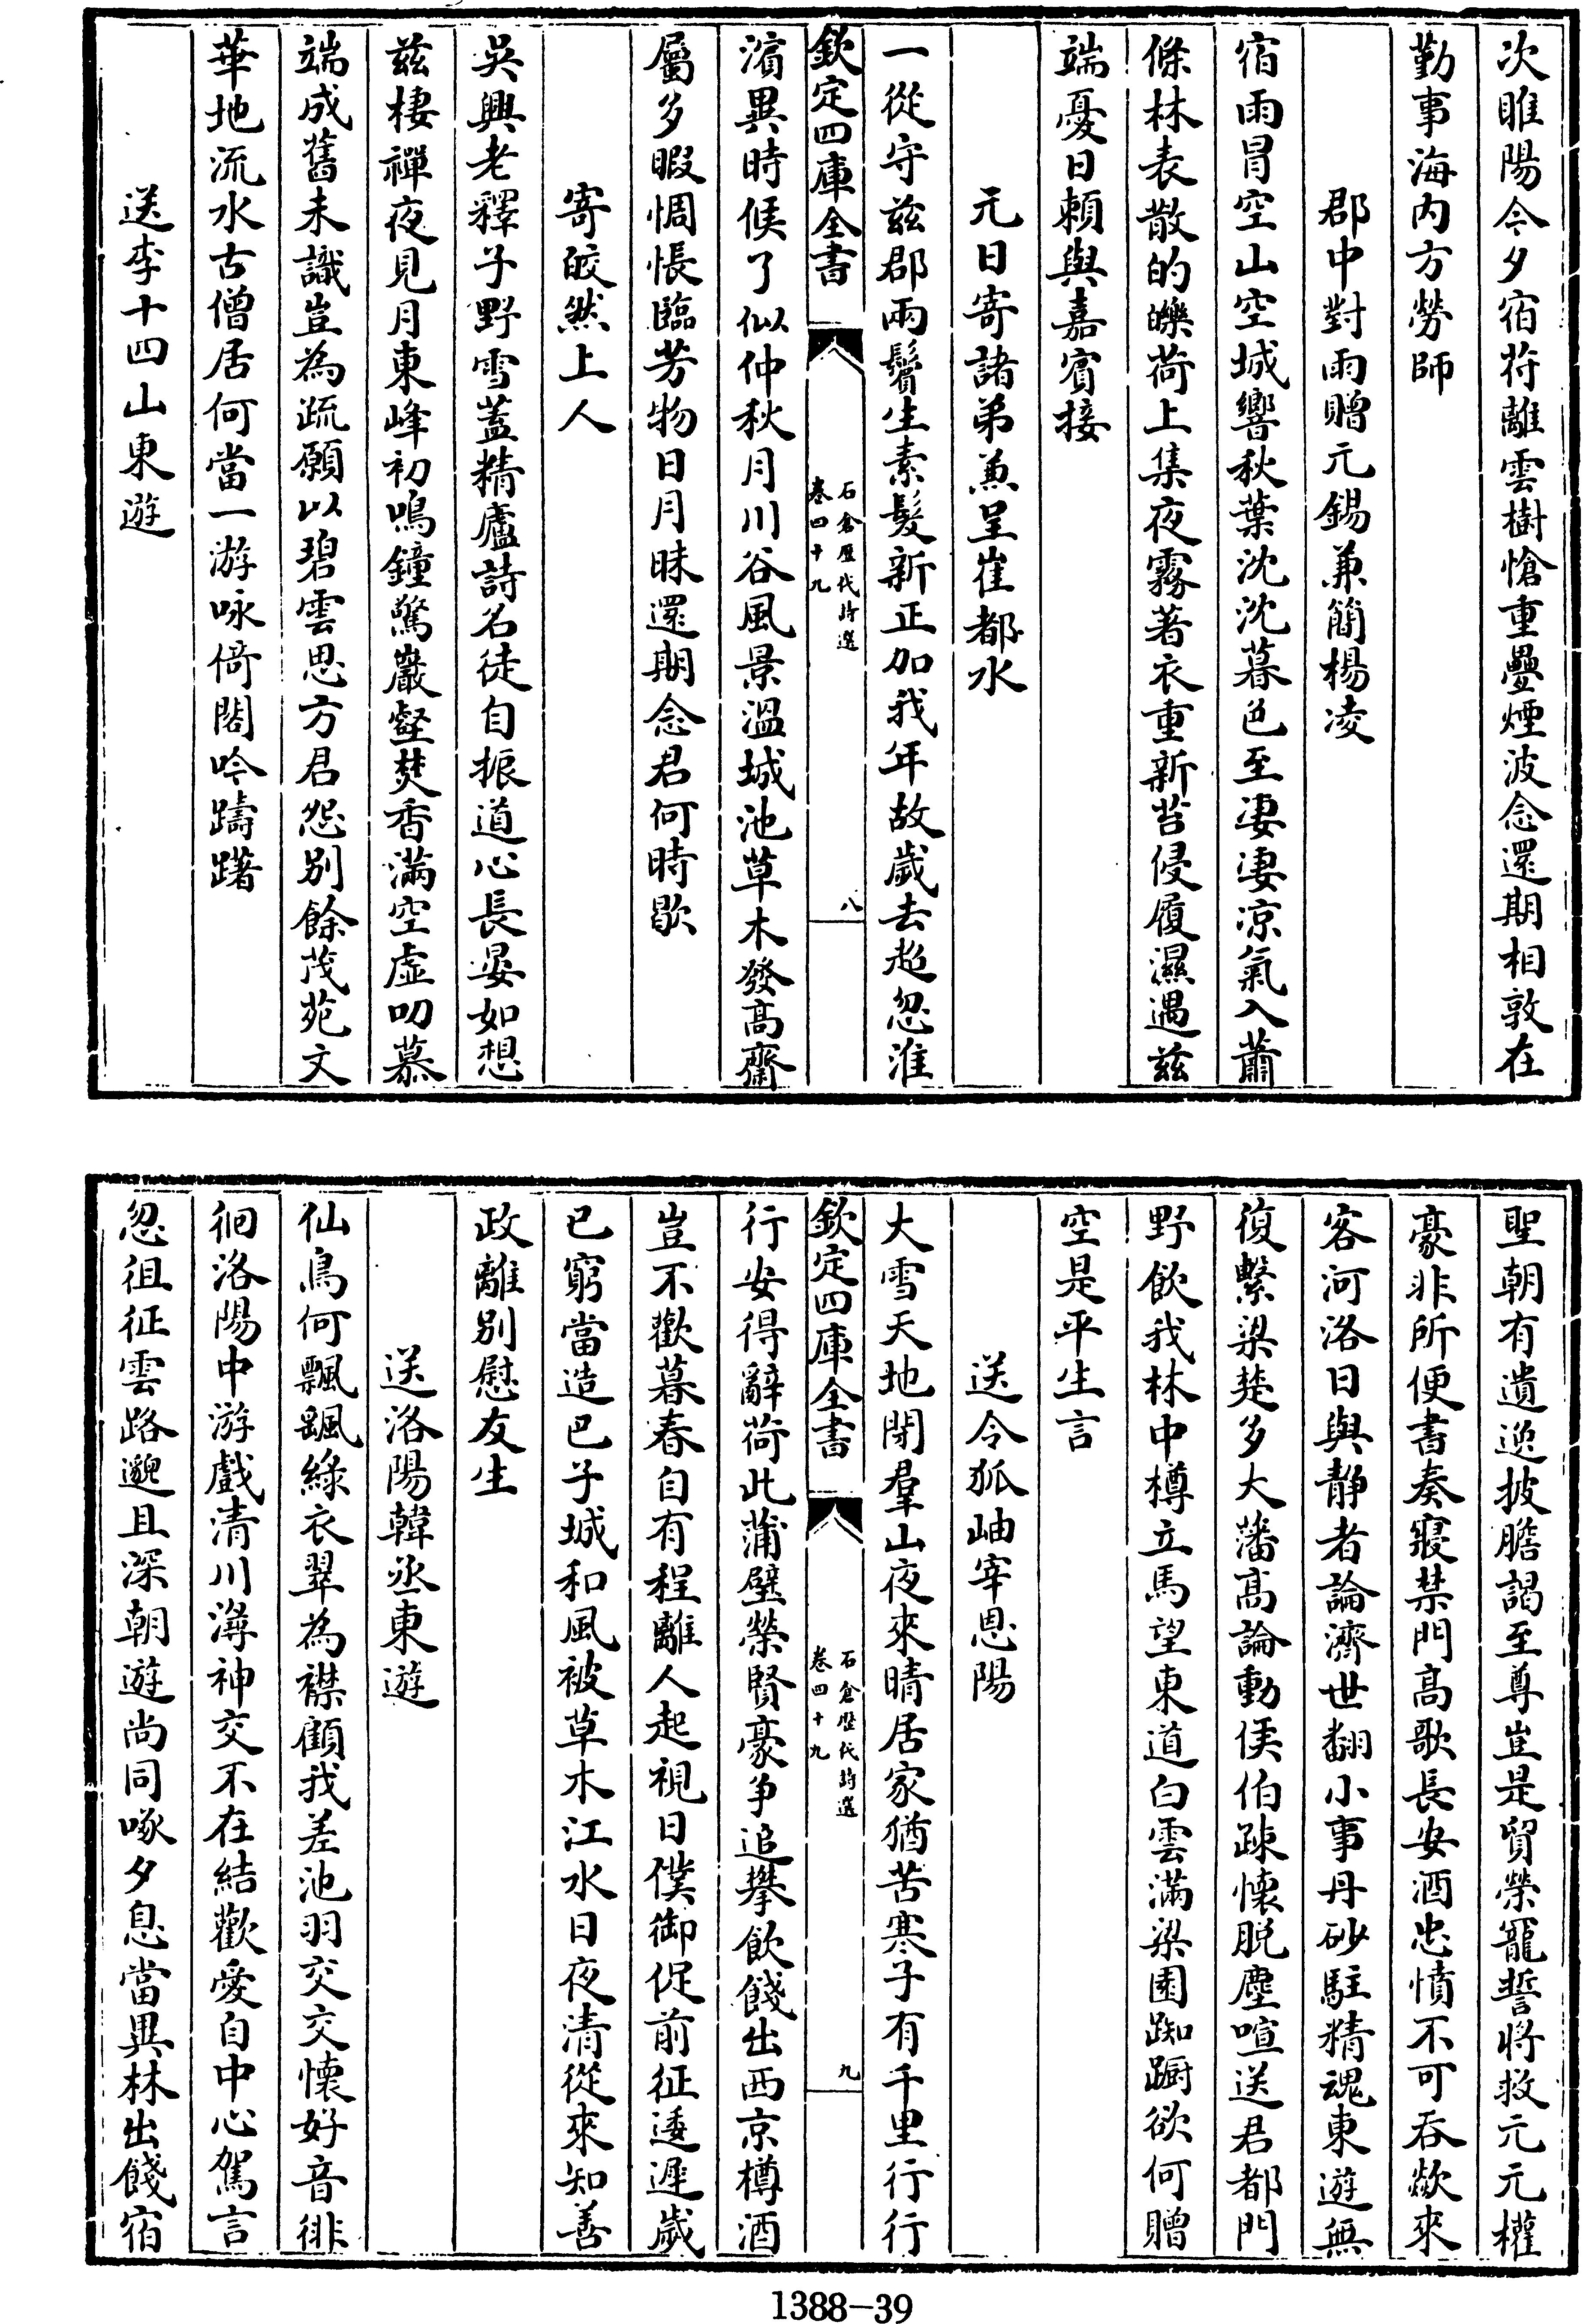 次睢陽今夕宿苻離雲樹愴重疊煙波念還期相敦在
勤事海内方勞師
郡中對雨贈元錫兼簡楊凌
宿雨冒空山空城響秋葉沈沈暮色至凄凄凉氣入蕭
條林表散的皪荷上集夜霧著衣重新苔侵履濕遇兹
端憂日賴與嘉賓接
元日寄諸弟兼呈崔都水
一從守兹郡兩鬢生素髮新正加我年故歲去超忽淮
欽定四庫全書
石倉歷代詩選
卷四十九
八
濵異時候了似仲秋月川谷風景溫城池草木發髙齋
屬多暇惆悵臨芳物日月昧還期念君何時歇
寄皎然上人
吳興老釋子野雪蓋精廬詩名徒自振道心長晏如想
兹棲禪夜見月東峰初鳴鐘驚巖壑焚香滿空虛叨慕
端成舊未識豈為疏願以碧雲思方君怨别餘茂苑文
華地流水古僧居何當一游咏倚閣吟躊躇
送李十四山東遊
聖朝有遺逸披膽謁至尊豈是貿榮寵誓將救元元權
豪非所便書奏寢禁門高歌長安酒忠憤不可吞欻來
客河洛日與静者論濟世翻小事丹砂駐精魂東遊無
復繫梁楚多大藩髙論動侯伯疎懷脱塵喧送君都門
野飲我林中樽立馬望東道白雲滿梁園踟蹰欲何贈
空是平生言
送令狐岫宰恩陽
大雪天地閉羣山夜來晴居家猶苦寒子有千里行行
欽定四庫全書
石倉歷代詩選
卷四十九
九
行安得辭荷此蒲璧榮賢豪争追攀飲餞出西京樽酒
豈不歡暮春自有程離人起視日僕御促前征逶遲歲
已窮當造巴子城和風被草木江水日夜清從來知善
政離别慰友生
送洛陽韓丞東遊
仙鳥何飄颻綠衣翠為襟顧我差池羽交交懷好音徘
徊洛陽中游戲清川潯神交不在結歡愛自中心駕言
忽徂征雲路邈且深朝遊尚同啄夕息當異林出餞宿
1388—39